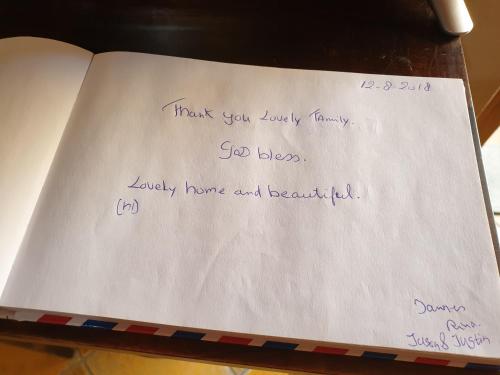 12-8-2018
Thank you Lovely Family.
God bless.
Lovely home and beautiful.
(nl)
Rina
Jason & Justin